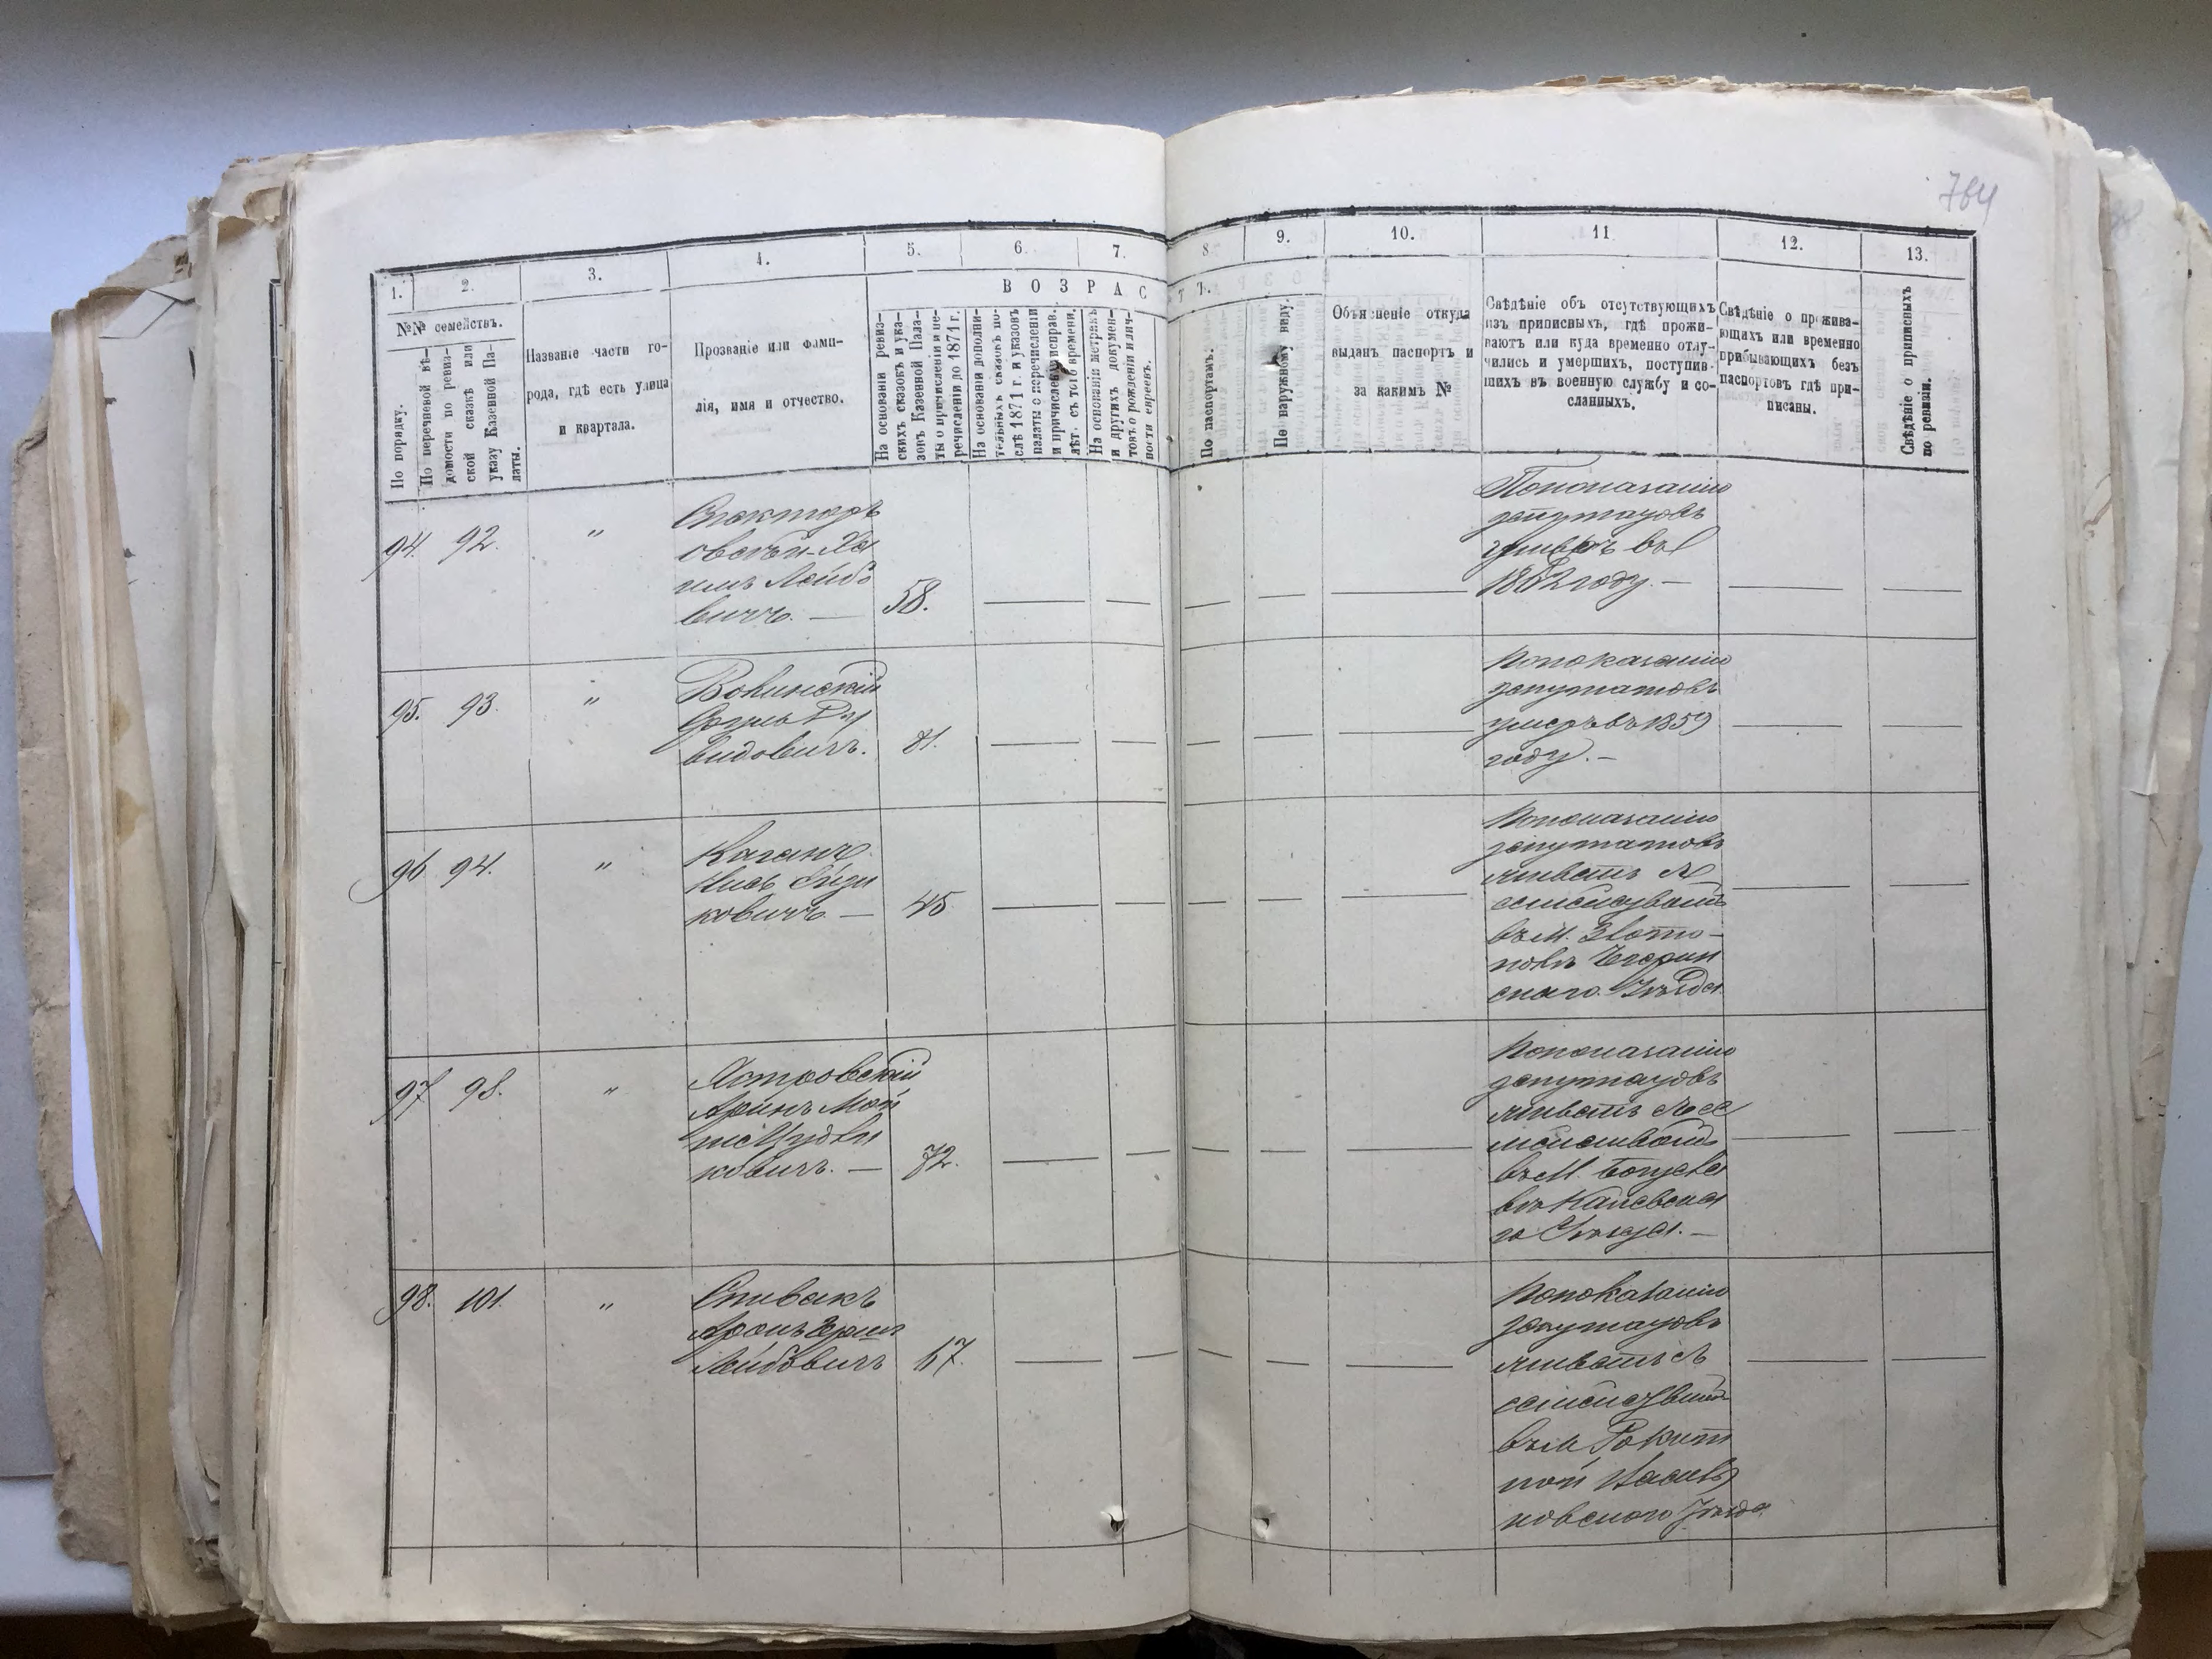 764
1.
2.
3.
4.
5.
6.
7.
8.
9.
10.
11
12.
13.
ВОЗРАСТЪ.
№№ семействъ.
По порядку.
По перечневой вѣ-
домости по ревиз-
ской сказкѣ или
указу Казенной Па-
латы.
Названіе части го-
рода, гдѣ есть улица
и квартала.
Прозваніе или фами-
лія, имя и отчество.
На основаніи ревиз-
скихъ сказокъ и ука-
зовъ Казенной Пала-
ты о причисленіи и пе-
речисленіи до 1871 г.
На основаніи дополни-
тельныхъ сказокъ по-
слѣ 1871 г. и указовъ
палаты о перечисленіи
и причисленіи исправ.
лѣт. съ того времени.
На основаніи метрикъ
и другихъ докумен-
товъ о рожденіи и лич-
ности евреевъ.
По паспортамъ.
По наружному виду.
Объясненіе откуда
выданъ паспортъ и
за какимъ №
Свѣдѣніе объ отсутствующихъ
изъ приписныхъ, гдѣ прожи-
ваютъ или куда временно отлу-
чились и умершихъ, поступив-
шихъ въ военную службу и со-
сланныхъ.
Свѣдѣніе о прожива-
ющихъ или временно
прибывающихъ безъ
паспортовъ гдѣ при-
писаны.
Свѣдѣніе о приписныхъ
по ревизіи.
94. 92. "
Спекторъ
вичъ. —
58.
Попоказанію
депутатовъ
1862 году. —
95. 93. "
Волинскій
видовичъ.
81.
Попоказанію
депутатовъ
умеръ въ 1859
году. —
96 94. "
Каганъ
ковичъ —
45
Попоказанію
депутатовъ
въ М. Злото-
полѣ Чегрин
скаго Уѣзда.
97 98. "
Ястровскій
ковичъ. —
72.
Попоказанію
депутатовъ
въ М. Богусла
въ Каневска
го Уѣзда. —
98. 101. "
Спивакъ
Аронъ Герш
Лейбовичъ
67.
Попоказанію
депутатовъ
въ М Рокит
ной Василь
ковского Уѣзда.